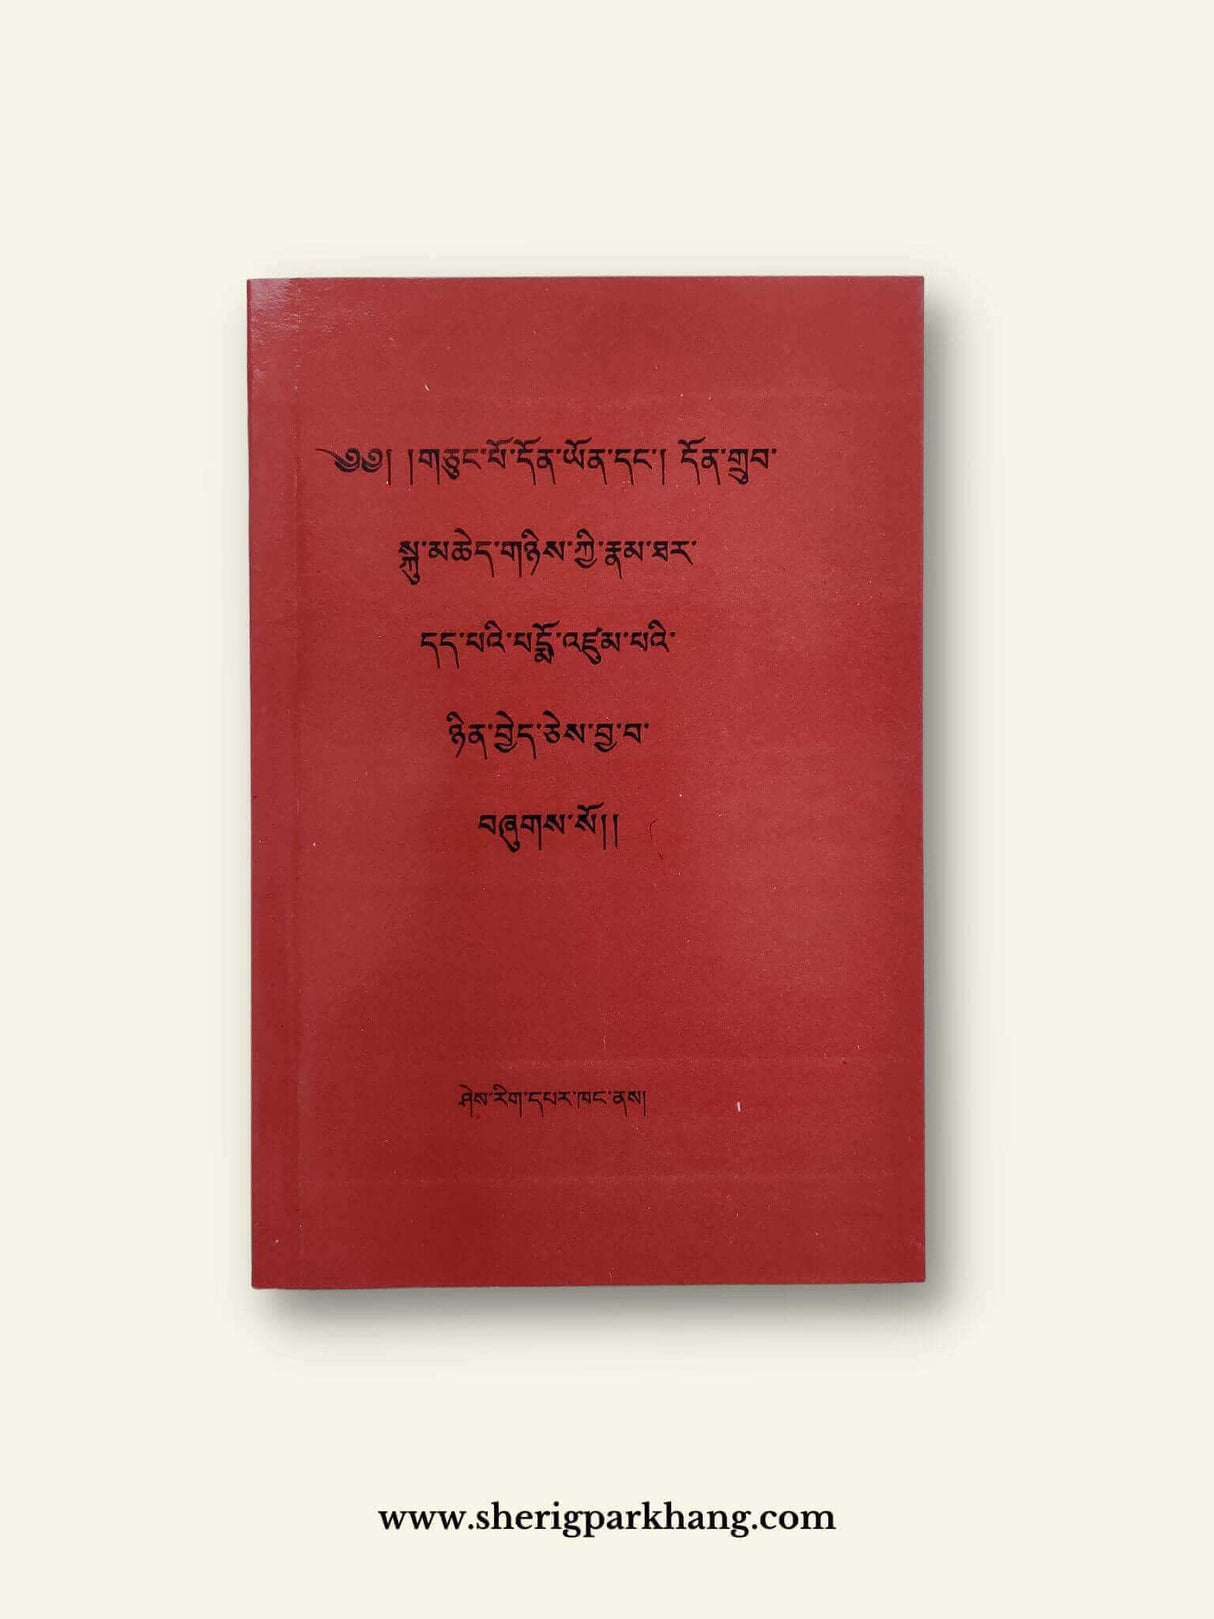 ༄༅། །གཅུང་པོ་དོན་ཡོན་དང་། དོན་གྲུབ་
སྐུ་མཆེད་གཉིས་ཀྱི་རྣམ་ཐར་
དད་པའི་པདྨོ་འཛུམ་པའི་
ཉིན་བྱེད་ཅེས་བྱ་བ་
བཞུགས་སོ།།
ཤེས་རིག་དཔར་ཁང་ནས།
www.sherigparkhang.com